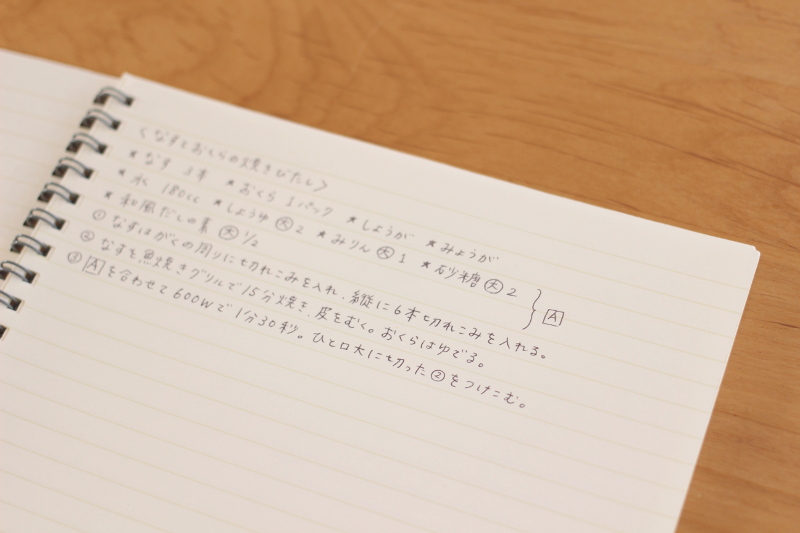 〈なすとおくらの焼きびたし〉
★なす 3本 ★おくら 1パック ★しょうが ★みょうが
★水 180cc ★しょうゆ 大 2 ★みりん 大 1 ★砂糖 大 2
★和風だしの素 大 1/2
} A
① なすはがくの周りに切れこみを入れ、縦に6本切れこみを入れる。
② なすを魚焼きグリルで15分焼き、皮をむく。おくらはゆでる。
③ Aを合わせて600Wで1分30秒。ひと口大に切った②をつけこむ。